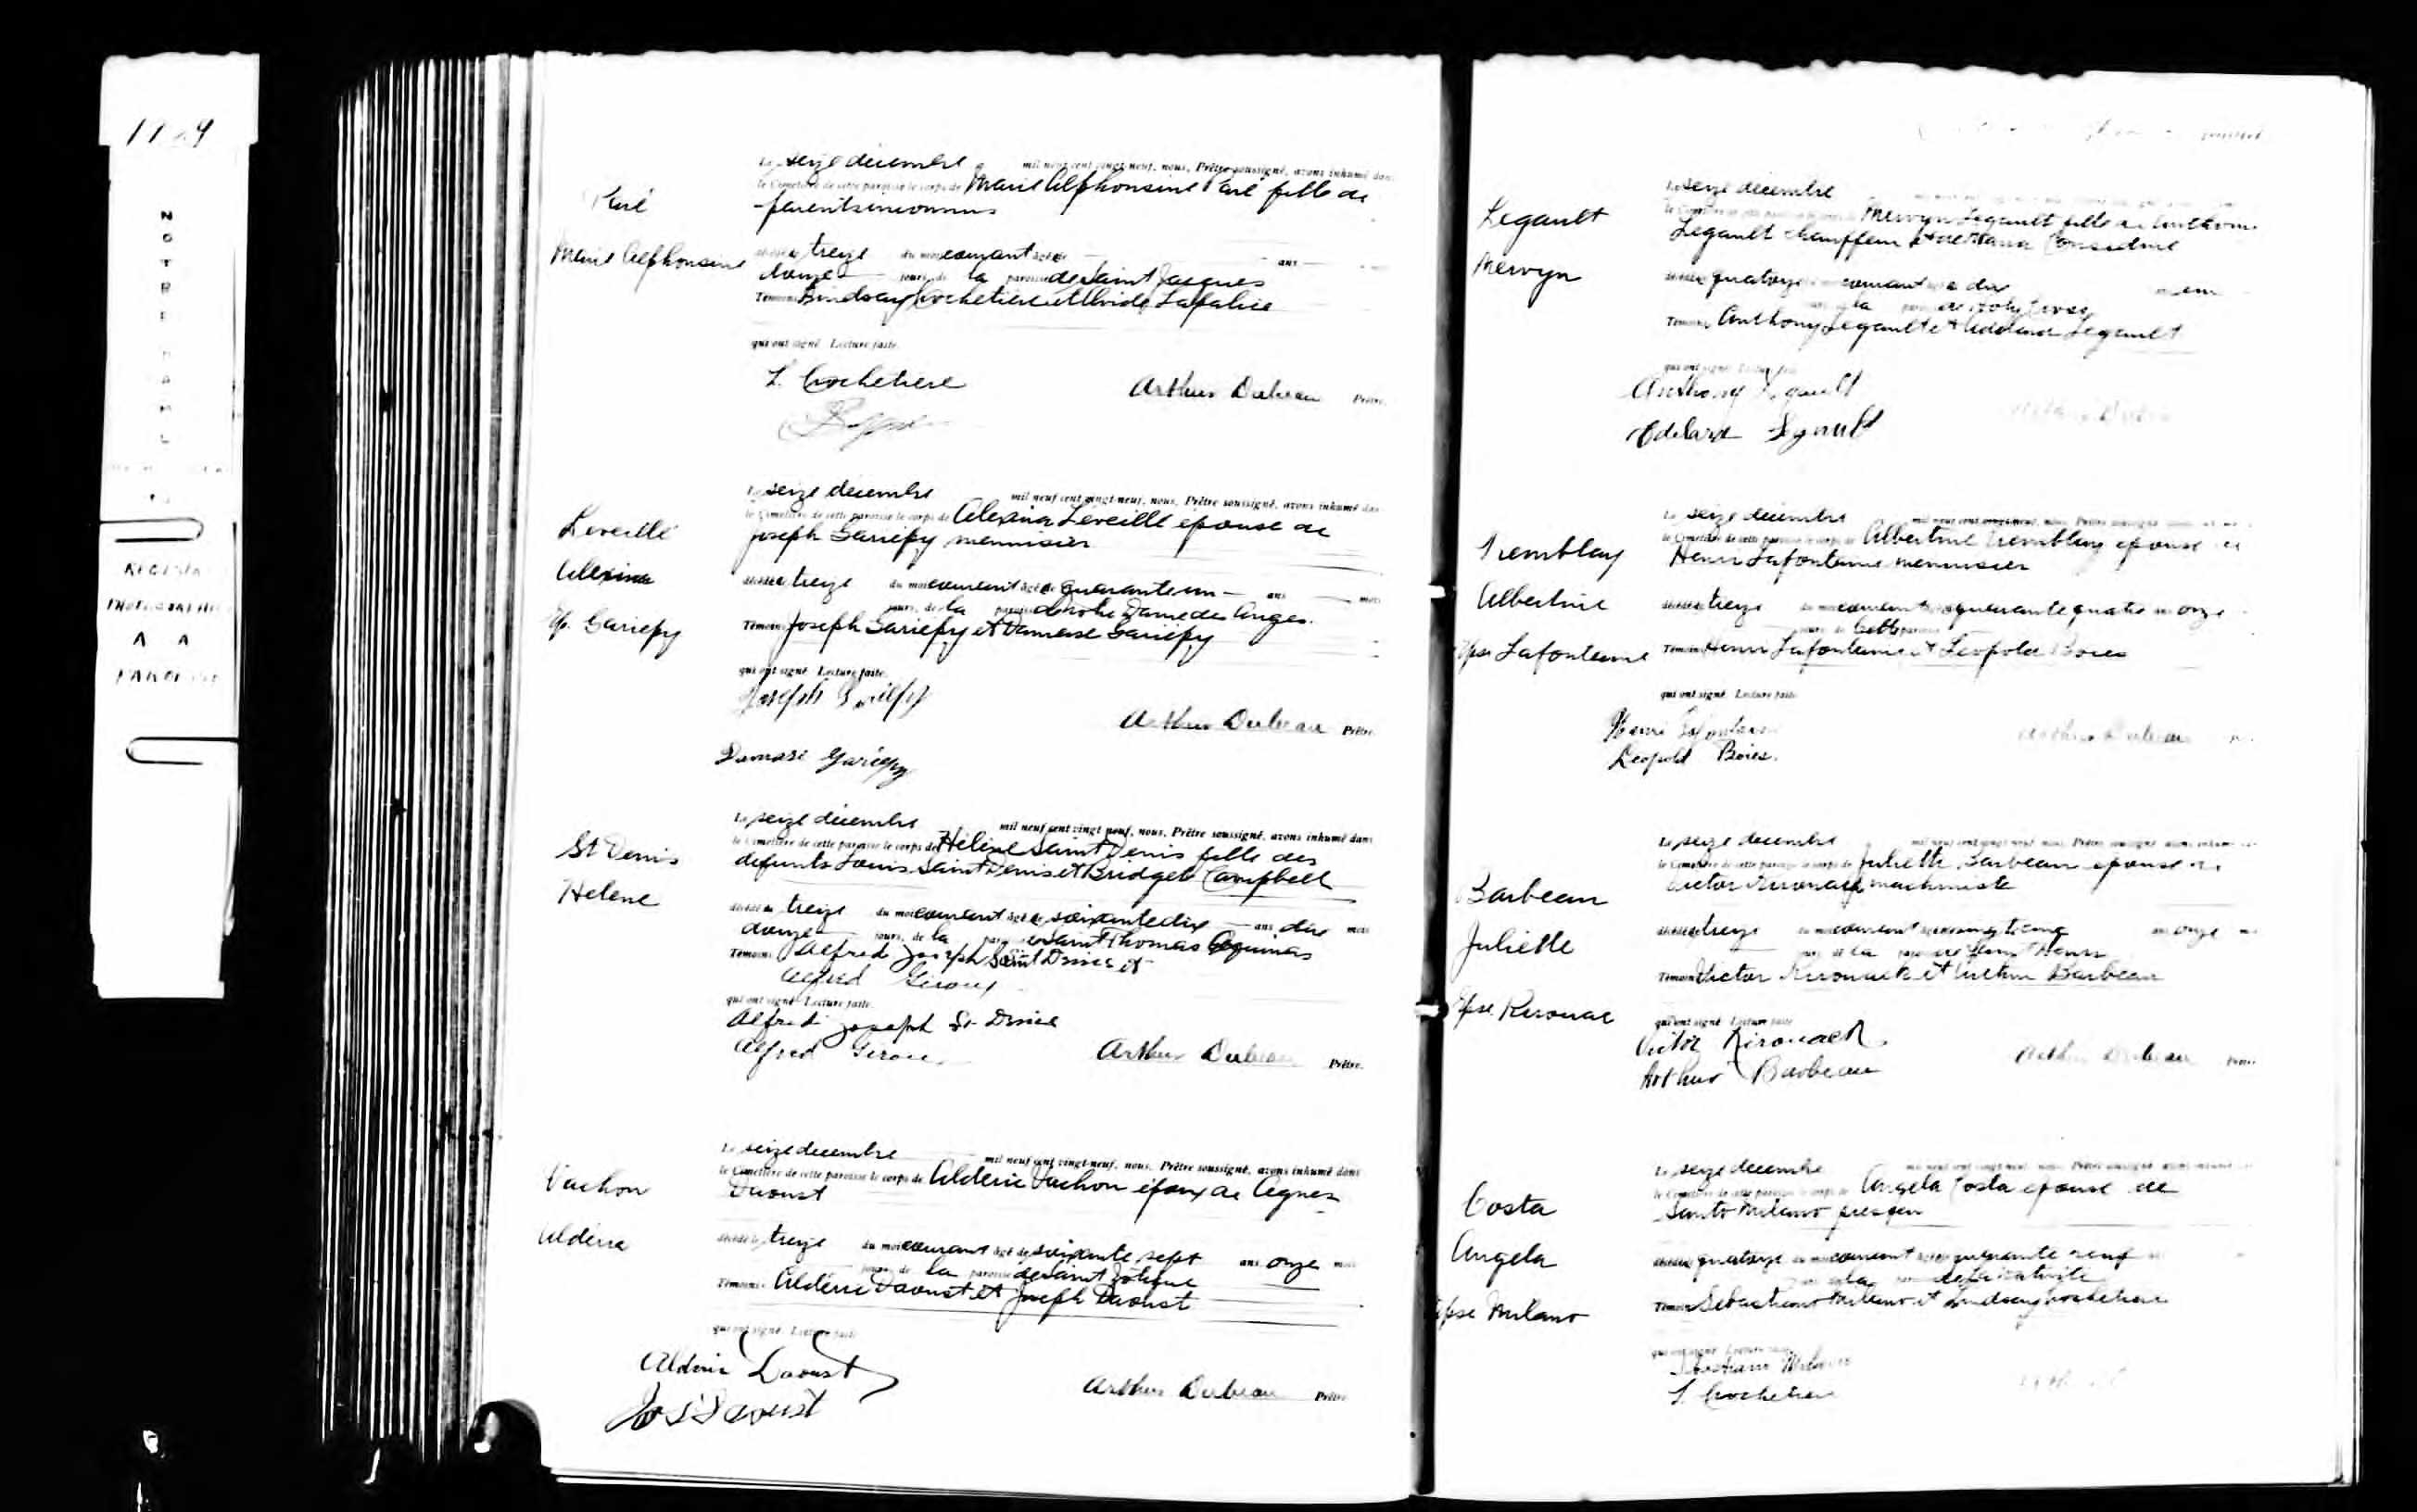 NOTRE
A A
Marie Alphonsine
Le seize decembre mil neuf cent vingt-neuf, nous, Prêtre soussigné, avons inhumé dans
le Cimetière de cette paroisse le corps de Marie Alphonsine fille de
parents inconnus
décédée treize du mois courant âgée de ans
douze jours, de la paroisse de Saint Jacques
Témoins Lindsay Crochetiere et
qui ont signé Lecture faite.
L. Crochetiere
Arthur Dubeau Prêtre.
Leveille
Alexina
Ep. Gariepy
Le seize decembre mil neuf cent vingt-neuf, nous, Prêtre soussigné, avons inhumé dans
le Cimetière de cette paroisse le corps de Alexina Leveille epouse de
Joseph Gariepy menuisier
décédée treize du mois courant âgée de quarante un ans mois
jours, de la paroisse de Notre Dame des Anges.
Témoins Joseph Gariepy et Damase Gariepy
qui ont signé Lecture faite.
Joseph Gariepy
Arthur Dubeau Prêtre
Damase Gariepy
St Denis
Helene
Le seize decembre mil neuf cent vingt neuf, nous, Prêtre soussigné, avons inhumé dans
le Cimetière de cette paroisse le corps de Hélène Saint Denis fille des
defunts Louis Saint Denis et Bridget Campbell
décédée treize du mois courant âgée de soixante dix ans dix mois
douze jours, de la paroisse Saint Thomas Aquinas
Témoins Alfred Joseph Saint Denis et
Alfred Giroux
qui ont signé Lecture faite.
Alfred Joseph St Denis
Alfred Giroux
Arthur Dubeau Prêtre.
Vachon
Alderic
Le seize decembre mil neuf cent vingt-neuf, nous, Prêtre soussigné, avons inhumé dans
le Cimetière de cette paroisse le corps de Alderic Vachon époux de Agnes
Daoust
décédé le treize du mois courant âgé de soixante sept ans onze mois
jours, de la paroisse de Saint Zotique
Témoins Alderic Daoust et Joseph Daoust
qui ont signé Lecture faite
Alderic Daoust
Jos Daoust
Arthur Dubeau Prêtre
Legault
Mervyn
Le seize decembre
Mervyn Legault fille de Anthony
Legault chauffeur et de Considine
quatorze courant
la de Holy Cross
Témoins Anthony Legault et Legault
qui ont signé Lecture faite
Anthony Legault
Edelard Legault
Tremblay
Albertine
Epse Lafontaine
Le seize decembre
le Cimetière de cette paroisse le corps de Albertine Tremblay epouse de
Henri Lafontaine menuisier
décédée treize du mois courant âgée quarante quatre ans onze
jours de cette paroisse
Témoins Henri Lafontaine et Leopold Boies
qui ont signé Lecture faite
Henri Lafontaine
Leopold Boies.
Arthur Dubeau
Barbeau
Juliette
Epse Kirouac
Le seize decembre
le Cimetière de cette paroisse le corps de Juliette Barbeau epouse de
Victor Kirouack machiniste
décédée treize du mois courant âgée vingt cinq ans onze
jours de la paroisse de Saint Henri
Témoins Victor Kirouack et Arthur Barbeau
qui ont signé Lecture faite
Victor Kirouack
Arthur Barbeau
Arthur Dubeau
Costa
Angela
Epse Milano
Le seize decembre
le Cimetière de cette paroisse le corps de Angela Costa epouse de
Santo Milano
décédée quatorze du mois courant âgée quarante neuf
la de la Nativité
Témoins Sebastiano Milano et Lindsay Crochetiere
qui ont signé Lecture faite
Sebastiano Milano
L. Crochetiere